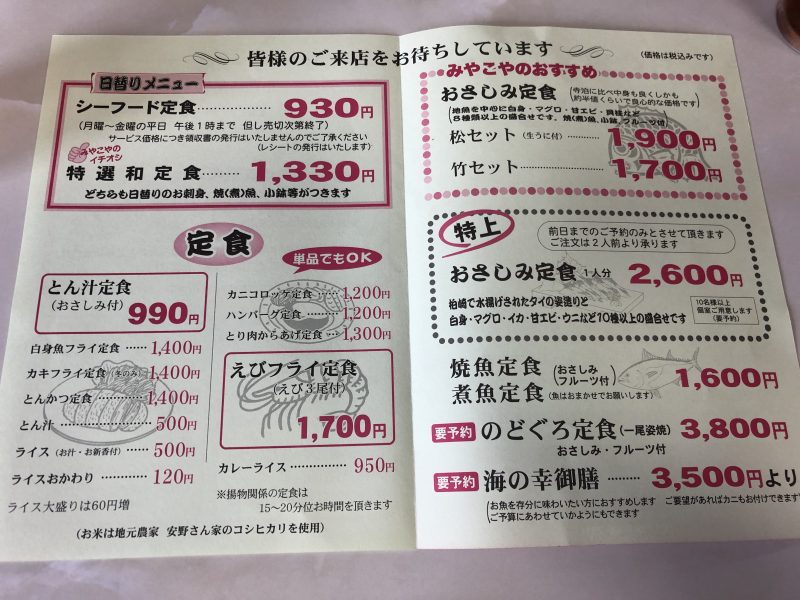 皆様のご来店をお待ちしています
(価格は税込みです)
日替りメニュー
シーフード定食 930円
(月曜〜金曜の平日 午後1時まで 但し売切次第終了)
サービス価格につき領収書の発行はいたしませんのでご了承ください
(レシートの発行はいたします)
みやこやのイチオシ
特選和定食 1,330円
どちらも日替りのお刺身、焼(煮)魚、小鉢等がつきます
定食
単品でもOK
とん汁定食
(おさしみ付) 990円
白身魚フライ定食 1,400円
カキフライ定食(冬のみ) 1,400円
とんかつ定食 1,400円
とん汁 500円
ライス(お汁・お新香付) 500円
ライスおかわり 120円
ライス大盛りは60円増
カニコロッケ定食 1,200円
ハンバーグ定食 1,200円
とり肉からあげ定食 1,300円
えびフライ定食
(えび3尾付)
1,700円
カレーライス 950円
※揚物関係の定食は
15〜20分位お時間を頂きます
(お米は地元農家 安野さん家のコシヒカリを使用)
みやこやのおすすめ
おさしみ定食 (寺泊に比べ中身も良くしかも
約半値くらいで良心的な価格です)
(地魚を中心に白身・マグロ・甘エビ・貝類など
8種類以上の盛合せです。焼(煮)魚、小鉢、フルーツ付)
松セット(生うに付) 1,900円
竹セット 1,700円
特上
前日までのご予約のみとさせて頂きます
ご注文は2人前より承ります
おさしみ定食 1人分 2,600円
柏崎で水揚げされたタイの姿造りと
白身・マグロ・イカ・甘エビ・ウニなど10種以上の盛合せです
10名様以上
個室ご用意します
(要予約)
焼魚定食 (おさしみ
フルーツ付)
煮魚定食 (魚はおまかせでお願いします)
1,600円
要予約 のどぐろ定食(一尾姿焼) 3,800円
おさしみ・フルーツ付
要予約 海の幸御膳 3,500円より
(お魚を存分に味わいたい方におすすめします ご要望があればカニもお付けできます
ご予算にあわせていかようにもできます)